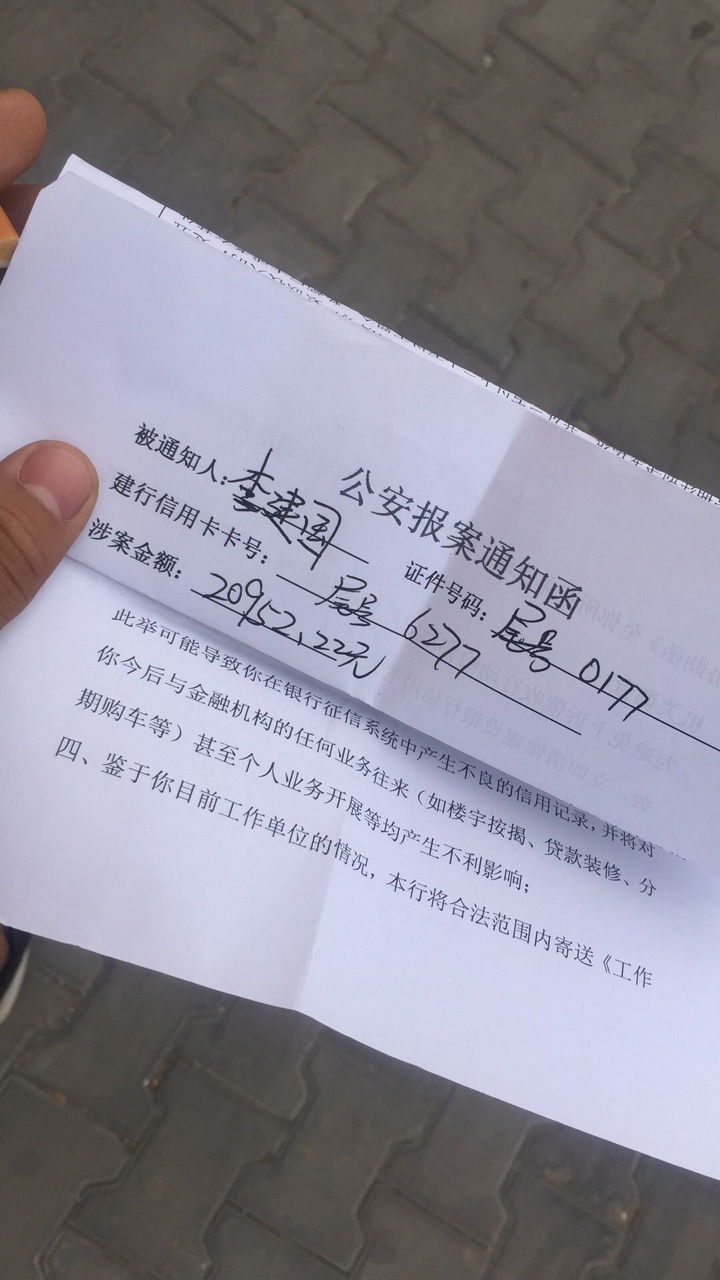 公安报案通知函
被通知人：李建国 证件号码：尾号 0177
建行信用卡卡号：尾号 6277
涉案金额：20952.22元
此举可能导致你在银行征信系统中产生不良的信用记录，并将对
你今后与金融机构的任何业务往来（如楼宇按揭、贷款装修、分
期购车等）甚至个人业务开展等均产生不利影响；
四、鉴于你目前工作单位的情况，本行将合法范围内寄送《工作